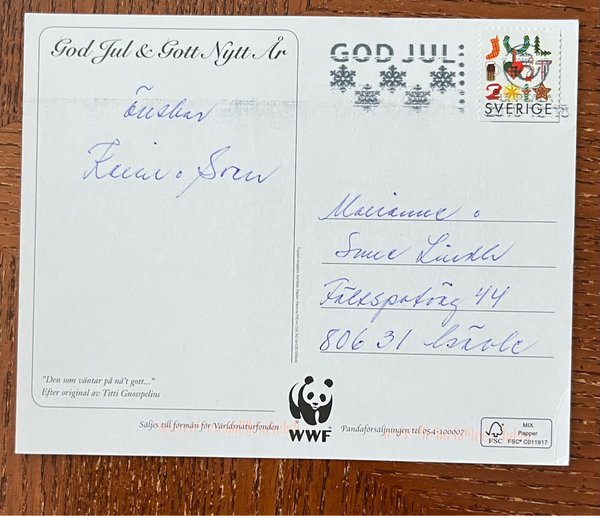 God Jul & Gott Nytt År
Önskar
o Sven
GOD JUL
JUL
POST
2012
SVERIGE
Marianne o
Fältspatväg 44
806 31 Gävle
"Den som väntar på nå't gott..."
Efter original av Titti Gnosspelius
Säljes till förmån för Världsnaturfonden
WWF
Pandaförsäljningen tel 054-100007
FSC
MIX
Papper
FSC® C011917